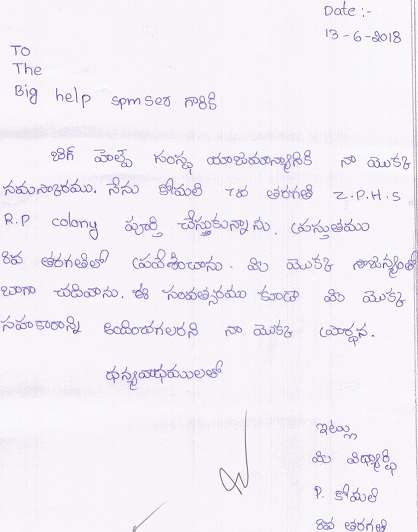 Date :-
13-6-2018
To
The
Big help spm sir గారికి
బిగ్ హెల్ప్ సంస్థ యాజమాన్యానికి నా యొక్క
నమస్కారము. నేను కోమలి 7వ తరగతి Z.P.H.S
R.P colony పూర్తి చేస్తుకున్నాను. ప్రస్తుతము
8వ తరగతిలో ప్రవేశించాను. మీ యొక్క సౌజన్యంతో
బాగా చదివాను. ఈ సంవత్సరము కూడా మీ యొక్క
సహకారాన్ని అందించగలరని నా యొక్క ప్రార్థన.
ధన్యవాధములతో
ఇట్లు
మీ విధ్యార్థి
P. కోమలి
8వ తరగతి